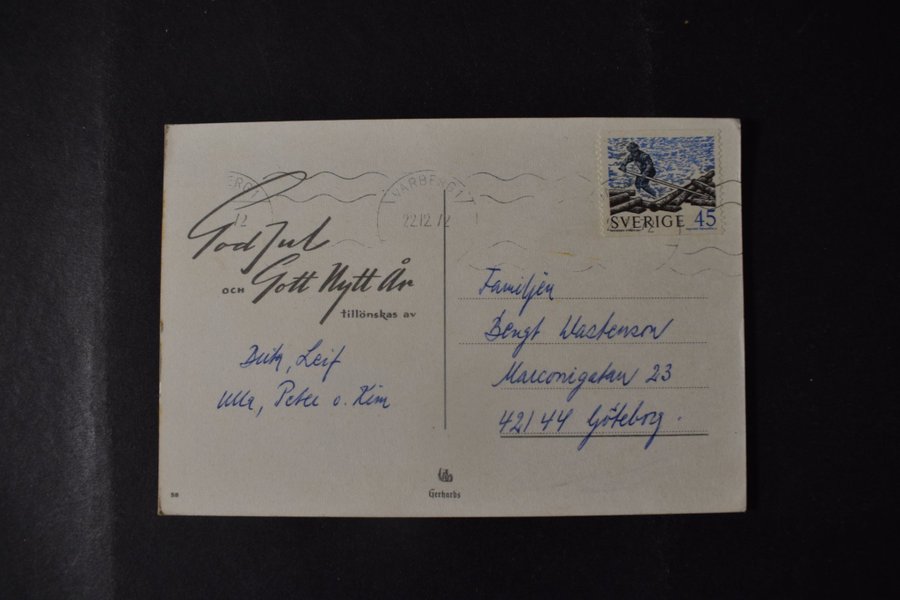 VARBERG 1
22.12.72
SVERIGE 45
God Jul
OCH Gott Nytt År
tillönskas av
Leif
Ulla, Peter o. Kim
Familjen
Bengt Wastenson
Marconigatan 23
421 44 Göteborg.
58
Gerhards